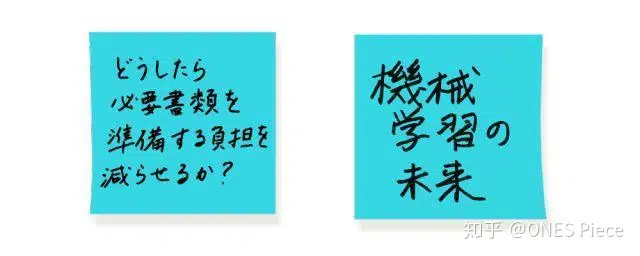 どうしたら
必要書類を
準備する負担を
減らせるか?
機械
学習の
未来
知乎 @ONES Piece